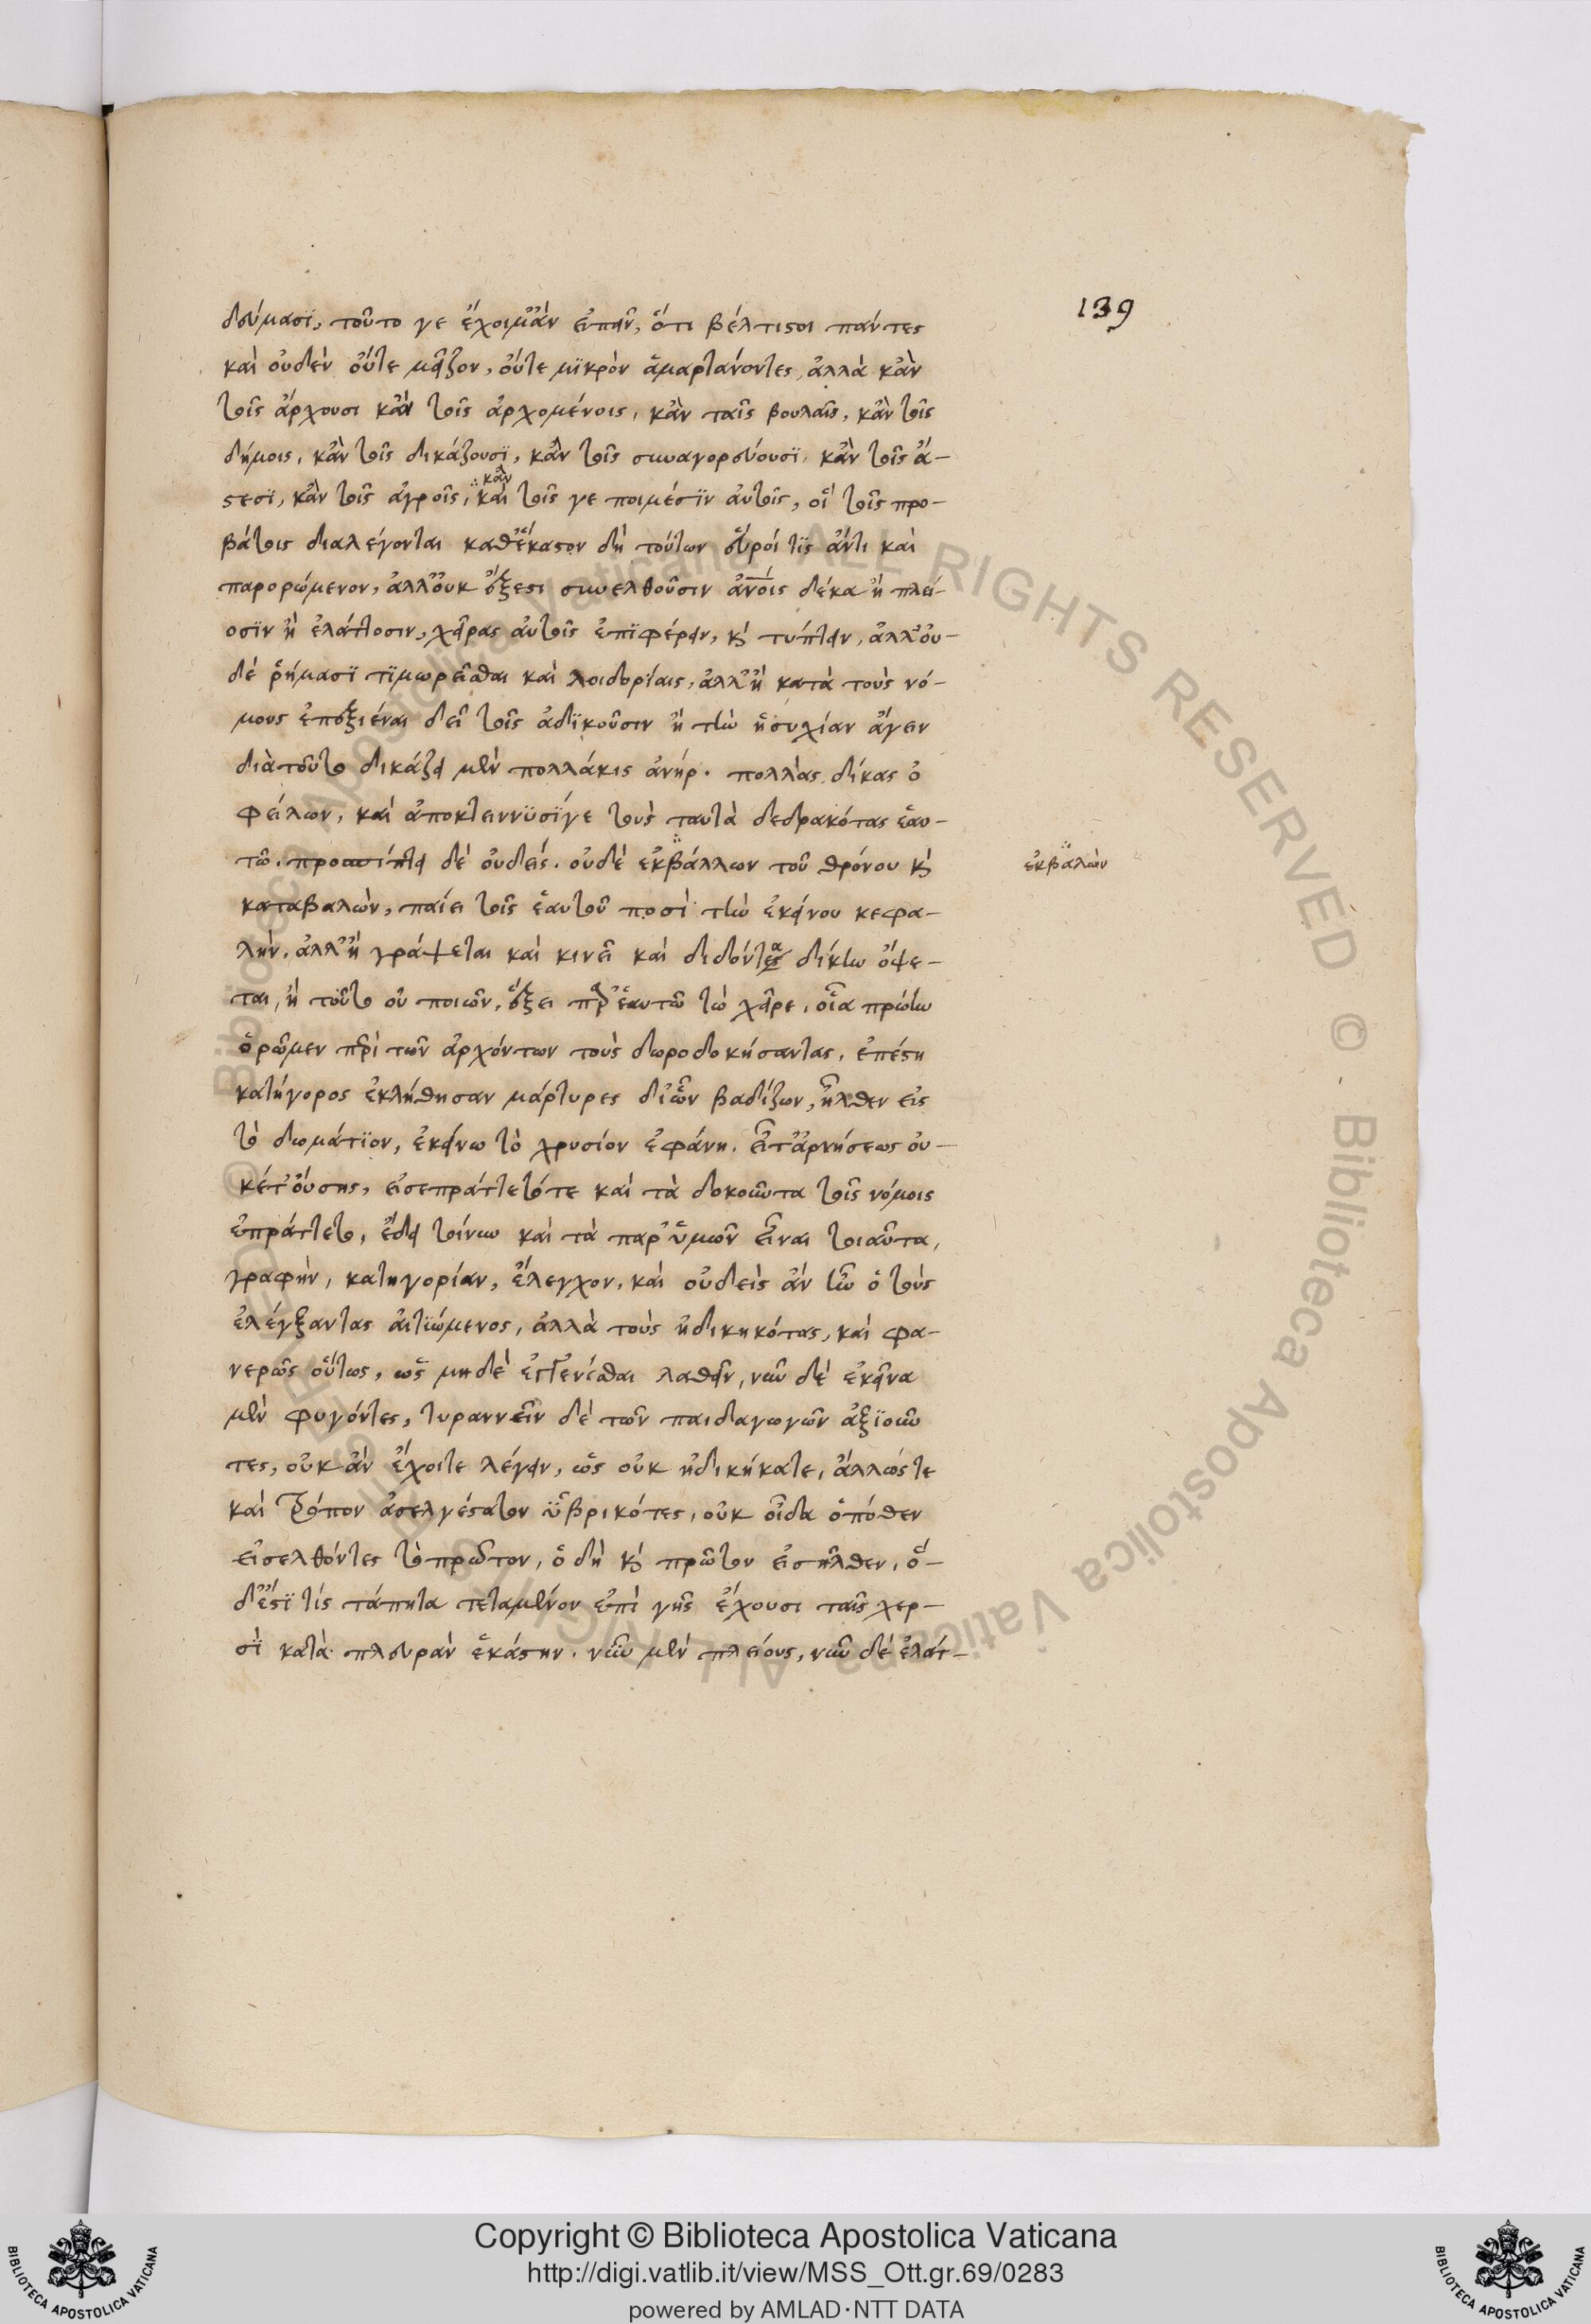 139
δεύμασϊ, τοῦτο γε ἔχοιμ' ἂν εἰπεῖν, ὅτι βέλτιστοι πάντες
καὶ οὐδὲν οὔτε μεῖζον, οὔτε μϊκρὸν ἁμαρτάνοντες, ἀλλὰ κἂν
τοῖς ἄρχουσι κἂν τοῖς ἀρχομένοις, κἂν ταῖς βουλαῖς, κἂν τοῖς
δήμοις, κἂν τοῖς δικάζουσϊ, κἂν τοῖς συναγορεύουσϊ, κἂν τοῖς ἄ-
κἂν
στεσϊ, κἂν τοῖς ἀγροῖς, καὶ τοῖς γε ποιμέσϊν αὐτοῖς, οἳ τοῖς προ-
βάτοις διαλέγονται καθ' ἕκαστον δὴ τούτων εὕροί τϊς ἄν τι καὶ
παρορώμενον, ἀλλ' οὐκ ἔξεστι συνελθοῦσιν ἀνοις δέκα ἢ πλεί-
οσϊν ἢ ἐλάττοσιν, χεῖρας αὐτοῖς ἐπϊφέρειν, κὶ τύπτειν, ἀλλ' οὐ-
δὲ ῥήμασϊ τϊμωρεῖσθαι καὶ λοιδορίαις, ἀλλ' ἢ κατὰ τοὺς νό-
μους ἐπεξιέναι δεῖ τοῖς ἀδϊκοῦσιν ἢ τὴν ἡσυχίαν ἄγειν
διὰ τοῦτο δικάζει μὲν πολλάκις ἀνήρ. πολλὰς δίκας ὀ
φείλων, καὶ ἀποκτειννϋσί γε τοὺς ταυτὰ δεδρακότας ἑαυ-
τῶ. προσπίπτει δὲ οὐδείς. οὐδὲ ἐκβάλλων τοῦ θρόνου κὶ
ἐκβαλὼν
καταβαλὼν, παίει τοῖς ἑαυτοῦ ποσὶ τὴν ἐκείνου κεφα-
λὴν. ἀλλ' ἢ γράψεται καὶ κινεῖ καὶ διδόντας δίκην ὄψε-
ται, ἢ τοῦτο οὐ ποιῶν, ἕξει παρ' ἑαυτῶ τὼ χεῖρε, οἷα πρώην
ὁρῶμεν περὶ τῶν ἀρχόντων τοὺς δωροδοκήσαντας, ἐπέστη
κατήγορος ἐκλήθησαν μάρτυρες δι' ὧν βαδίζων, ἦλθεν εἰς
τὸ δωμάτϊον, ἐκείνω τὸ χρυσίον ἐφάνη. εἶτ' ἀρνήσεως οὐ-
κέτ' οὔσης, εἰσεπράττετό τε καὶ τὰ δοκοῦντα τοῖς νόμοις
ἐπράττετο, ἔδει τοίνυν καὶ τὰ παρ' ὑμῶν εἶναι τοιαῦτα,
γραφὴν, κατηγορίαν, ἔλεγχον, καὶ οὐδεὶς ἂν ἦν ὁ τοὺς
ἐλέγξαντας αἰτϊώμενος, ἀλλὰ τοὺς ἠδικηκότας, καὶ φα-
νερῶς οὕτως, ὡς μηδὲ ἐγγενέσθαι λαθεῖν, νῦν δὲ ἐκεῖνα
μὲν φυγόντες, τυραννεῖν δὲ τῶν παιδαγωγῶν ἀξϊοῦν
τες, οὐκ ἂν ἔχοιτε λέγειν, ὡς οὐκ ἠδικήκατε, ἄλλως τε
καὶ τρόπον ἀσελγέστατον ὑβρικότες, οὐκ οἶδα ὁπόθεν
εἰσελθόντες τὸ πρῶτον, ὃ δὴ κὶ πρῶτον εἰσῆλθεν, ὃ-
δ' ἔστϊ τίς τάπητα τεταμένον ἐπὶ γῆς ἔχουσι ταῖς χερ-
σὶ κατὰ πλευρὰν ἑκάστην. νῦν μὲν πλείους, νῦν δὲ ἐλάτ-
Copyright © Biblioteca Apostolica Vaticana
http://digi.vatlib.it/view/MSS_Ott.gr.69/0283
powered by AMLAD·NTT DATA